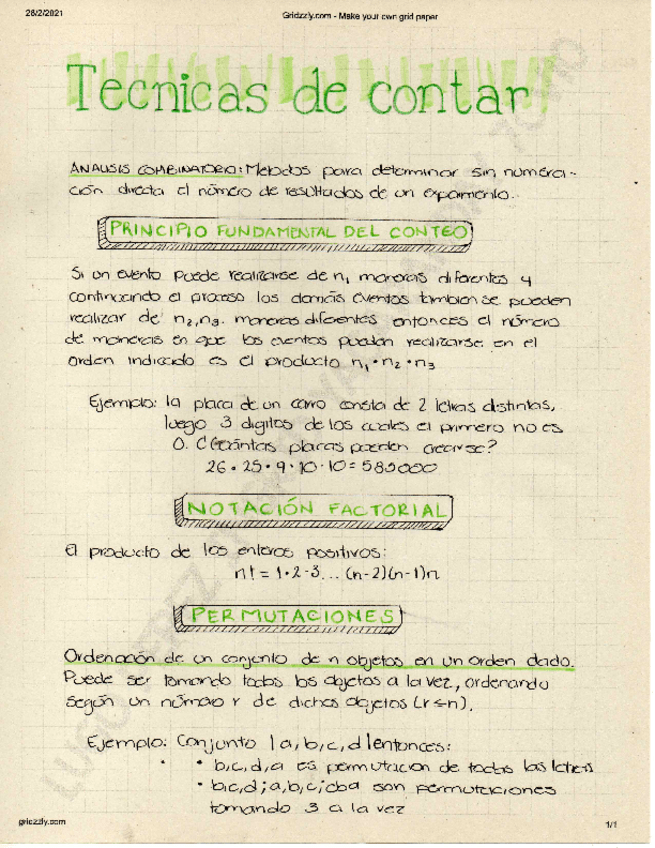 28/2/2021
Gridzzly.com - Make your own grid paper
Tecnicas de contar
ANALISIS COMBINATORIO: Metodos para determinar sin numera-
ción directa el número de resultados de un experimento.
PRINCIPIO FUNDAMENTAL DEL CONTEO
Si un evento puede realizarse de n₁ maneras diferentes y
continuando el proceso los demás eventos tambien se pueden
realizar de n₂, n₃. maneras diferentes entonces el número
de maneras en que los eventos puedan realizarse en el
orden indicado es el producto n₁ · n₂ · n₃
Ejemplo: la placa de un carro consta de 2 letras distintas,
luego 3 digitos de los cuales el primero no es
0. ¿Cuántas placas pueden crearse?
26 · 25 · 9 · 10 · 10 = 585000
NOTACIÓN FACTORIAL
el producto de los enteros positivos:
n! = 1 · 2 · 3 ... (n-2)(n-1)n
PERMUTACIONES
Ordenación de un conjunto de n objetos en un orden dado.
Puede ser tomando todos los objetos a la vez, ordenando
según un número r de dichos objetos (r≤n).
Ejemplo: Conjunto {a,b,c,d} entonces:
• b,c,d,a es permutacion de todas las letras
• b,c,d; a,b,c; cba son permutaciones
tomando 3 a la vez
gridzzly.com
1/1